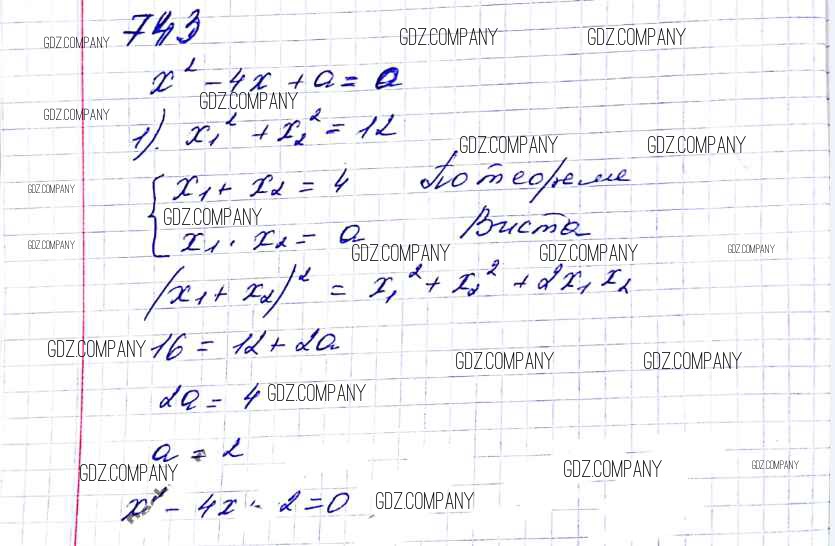 743
GDZ.COMPANY GDZ.COMPANY GDZ.COMPANY
x² - 4x + a = a
GDZ.COMPANY
GDZ.COMPANY
1). x₁² + x₂² = 12
GDZ.COMPANY GDZ.COMPANY
x₁ + x₂ = 4 По теореме
GDZ.COMPANY
GDZ.COMPANY
x₁ · x₂ = a Виета
GDZ.COMPANY GDZ.COMPANY GDZ.COMPANY GDZ.COMPANY
(x₁ + x₂)² = x₁² + x₂² + 2x₁ x₂
GDZ.COMPANY 16 = 12 + 2a
GDZ.COMPANY GDZ.COMPANY
2a = 4 GDZ.COMPANY
a = 2
GDZ.COMPANY GDZ.COMPANY GDZ.COMPANY
x² - 4x - 2 = 0 GDZ.COMPANY